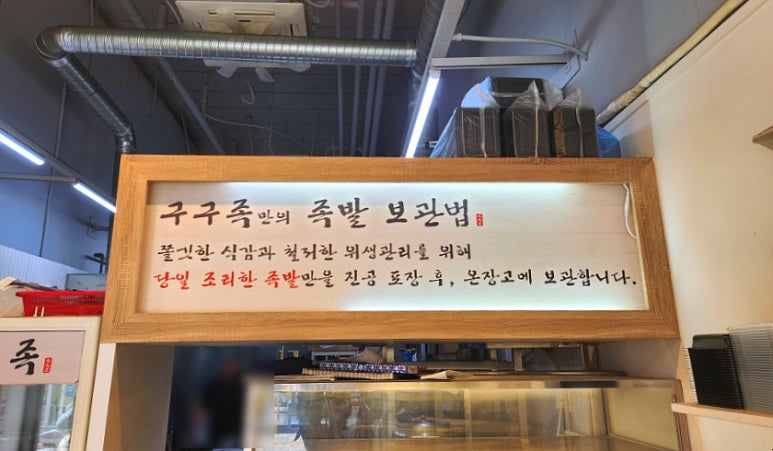 구구족만의 족발 보관법
쫄깃한 식감과 철저한 위생관리를 위해
당일 조리한 족발만을 진공 포장 후, 온장고에 보관합니다.
족